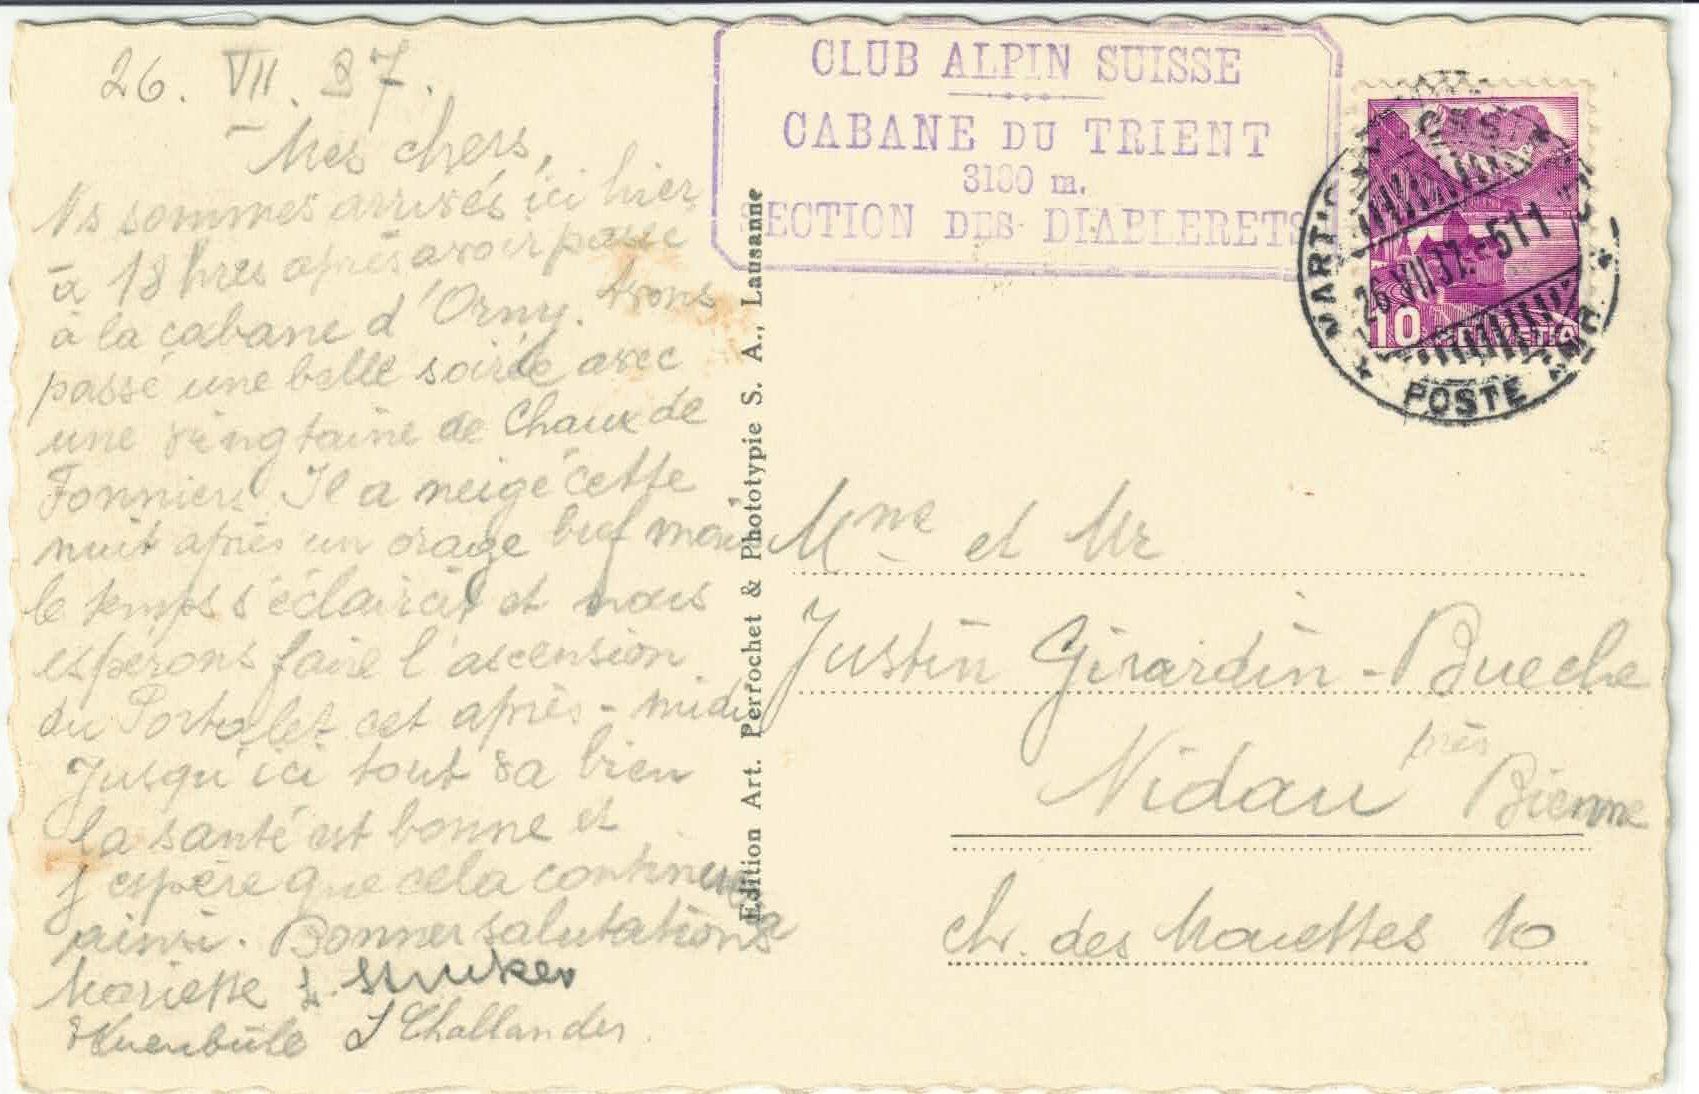 26. VII. 37.
Mes chers,
Ns sommes arrivés ici hier
à 18 hres après avoir passé
à la cabane d'Orny. Avons
passé une belle soirée avec
une vingtaine de Chaux de
Fonniers. Il a neigé cette
nuit après un orage bref mais
le temps s'éclaircit et nous
espérons faire l'ascension
du Portalet cet après-midi
Jusqu'ici tout va bien
la santé est bonne et
j'espère que cela continuera
ainsi. Bonnes salutations
Mariette
J Challandes
Edition Art. Perrochet & Phototypie S. A., Lausanne
CLUB ALPIN SUISSE
CABANE DU TRIENT
3130 m.
SECTION DES DIABLERETS
26 VII 37.-511
POSTE
10
Mme et Mr
Justin Girardin-Bueche
Nidau près Bienne
ch. des Mouettes 10